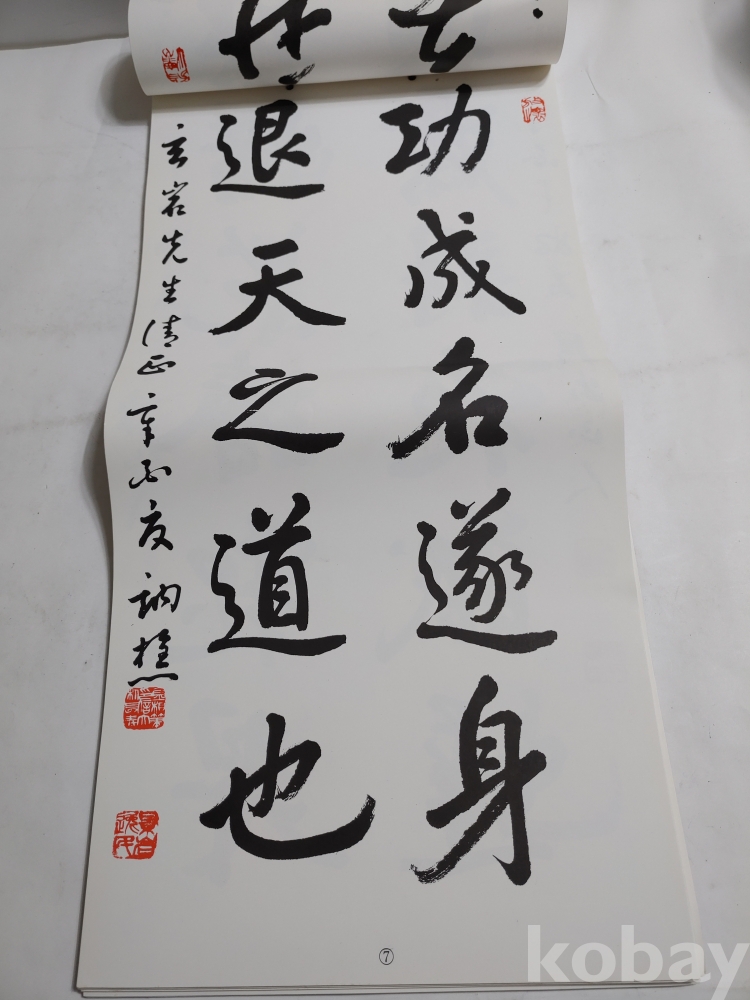 功成名遂身
退天之道也
玄岩先生清正 辛酉夏 訥樵
⑦
kobay